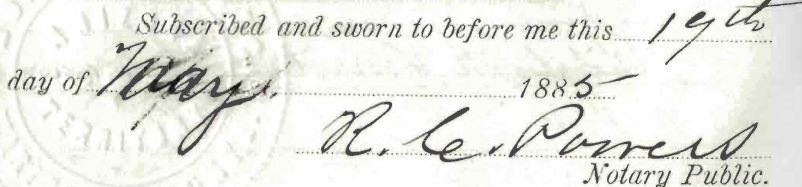 Subscribed and sworn to before me this 19th
day of May 1885
R. C. Powers
Notary Public.